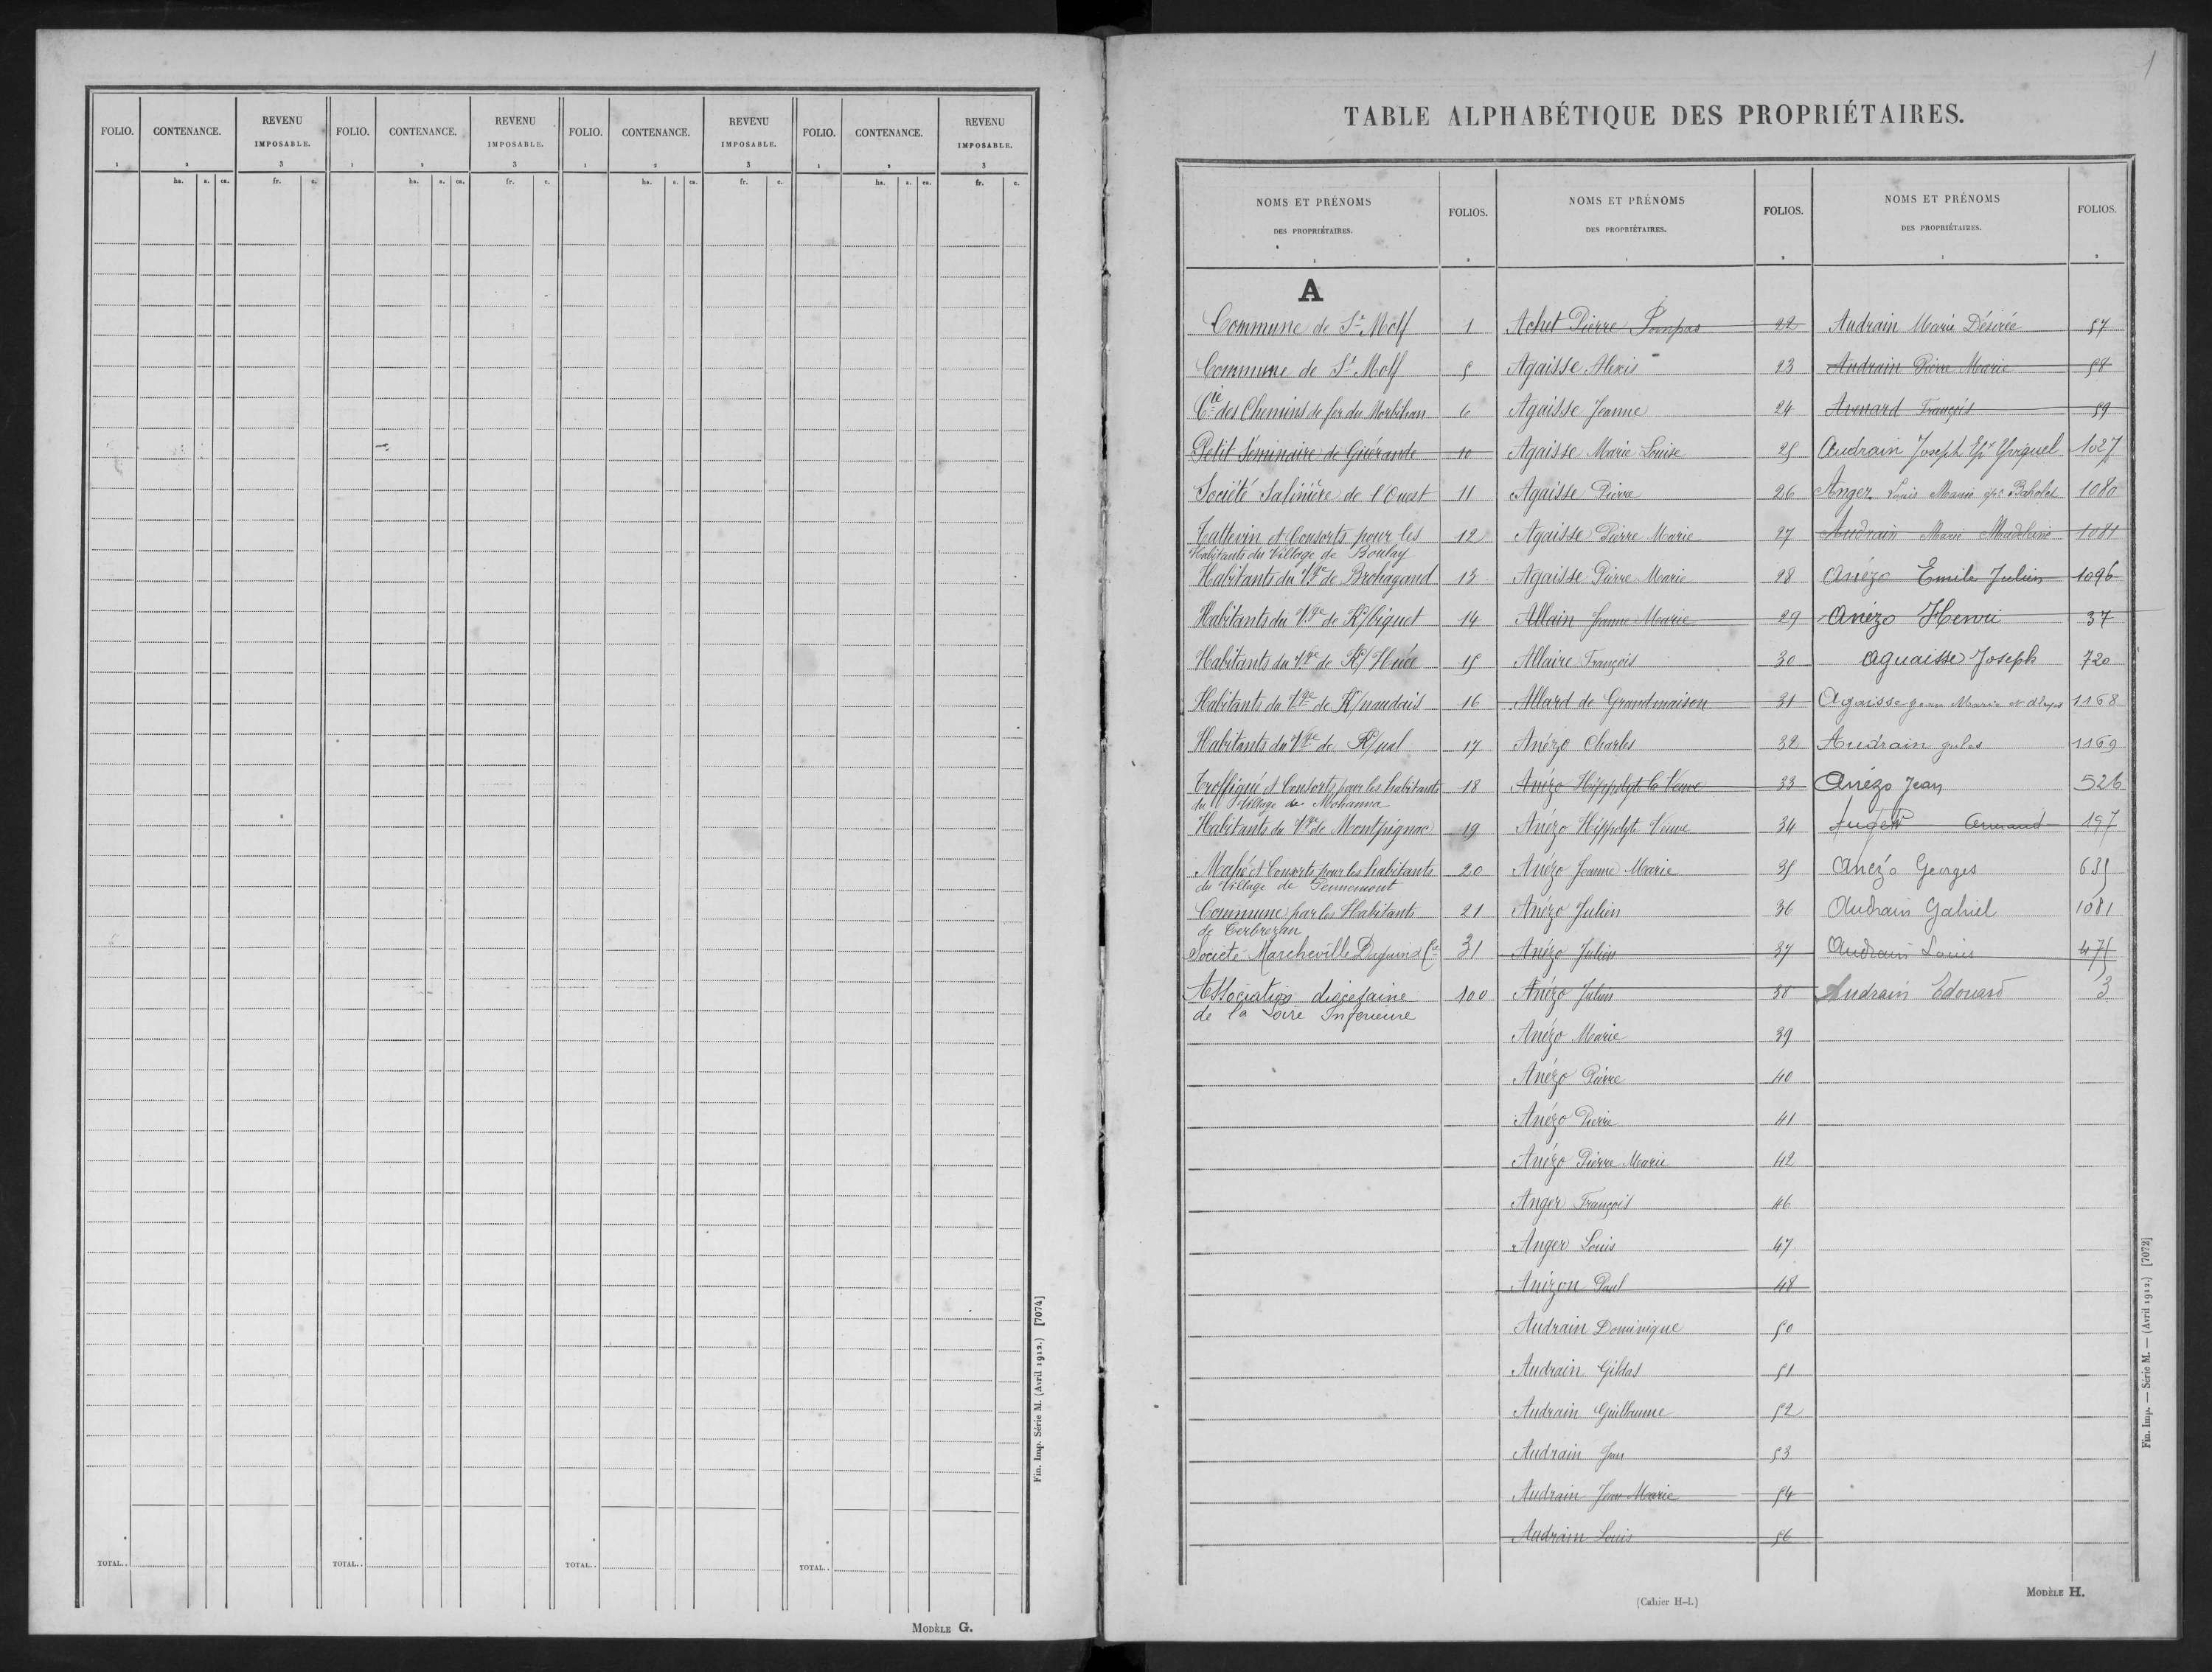 FOLIO. CONTENANCE. REVENU IMPOSABLE. FOLIO. CONTENANCE. REVENU IMPOSABLE. FOLIO. CONTENANCE. REVENU IMPOSABLE. FOLIO. CONTENANCE. REVENU IMPOSABLE.
1 2 3 1 2 3 1 2 3 1 2 3
ha. a. ca. fr. c. ha. a. ca. fr. c. ha. a. ca. fr. c. ha. a. ca. fr. c.
TOTAL.. TOTAL.. TOTAL.. TOTAL..
Fin. Imp. Série M. (Avril 1912.) [7074]
MODÈLE G.
1
TABLE ALPHABÉTIQUE DES PROPRIÉTAIRES.
NOMS ET PRÉNOMS DES PROPRIÉTAIRES. FOLIOS. NOMS ET PRÉNOMS DES PROPRIÉTAIRES. FOLIOS. NOMS ET PRÉNOMS DES PROPRIÉTAIRES. FOLIOS.
1 2 1 2 1 2
A
Commune de St Molf 1
Commune de St Molf 5
Cie des Chemins de fer du Morbihan 6
Petit Séminaire de Guérande 10
Société Salinière de l'Ouest 11
Tattevin et Consorts pour les 12
Habitants du Village de Boulay
Habitants du Vge de Brohagand 13
Habitants du Vge de K/biquet 14
Habitants du Vge de K/Huée 15
Habitants du Vge de K/naudais 16
Habitants du Vge de K/ual 17
Troffigué et Consorts pour les habitants 18
du Village de Mohanna
Habitants du Vge de Montpignac 19
Mahé et Consorts pour les habitants 20
du Village de Pennemont
Commune par les Habitants 21
de Terbrezan
Société Marcheville Daguin & Cie 31
Association diocésaine 100
de la Loire Inférieure
Achet Pierre 22
Agaisse Alexis 23
Agaisse Jeanne 24
Agaisse Marie Louise 25
Agaisse Pierre 26
Agaisse Pierre Marie 27
Agaisse Pierre Marie 28
Allain Jeanne Marie 29
Allaire François 30
Allard de Grandmaison 31
Anézo Charles 32
Anézo Hippolyte la Veuve 33
Anézo Hippolyte Veuve 34
Anézo Jeanne Marie 35
Anézo Julien 36
Anézo Julien 37
Anézo Julien 38
Anézo Marie 39
Anézo Pierre 40
Anézo Pierre 41
Anézo Pierre Marie 42
Anger François 46
Anger Louis 47
Anizon Paul 48
Audrain Dominique 50
Audrain Gildas 51
Audrain Guillaume 52
Audrain Jean 53
Audrain Jean Marie 54
Audrain Louis 56
Audrain Marie Désirée 57
Audrain Pierre Marie 58
Avenard François 59
Audrain Joseph 1027
Anger Louis Marie 1080
Audrain Marie Madeleine 1081
Anézo Emile Julien 1096
Anézo Henri 37
Aguaisse Joseph 720
Agaisse Jean Marie 1168
Audrain Jules 1169
Anézo Jean 526
Armand 197
Anézo Georges 635
Audrain Gabriel 1081
Audrain Louis 475
Audrain Edouard 3
Fin. Imp. — Série M. — (Avril 1912.) [7072]
(Cahier H-L)
MODÈLE H.